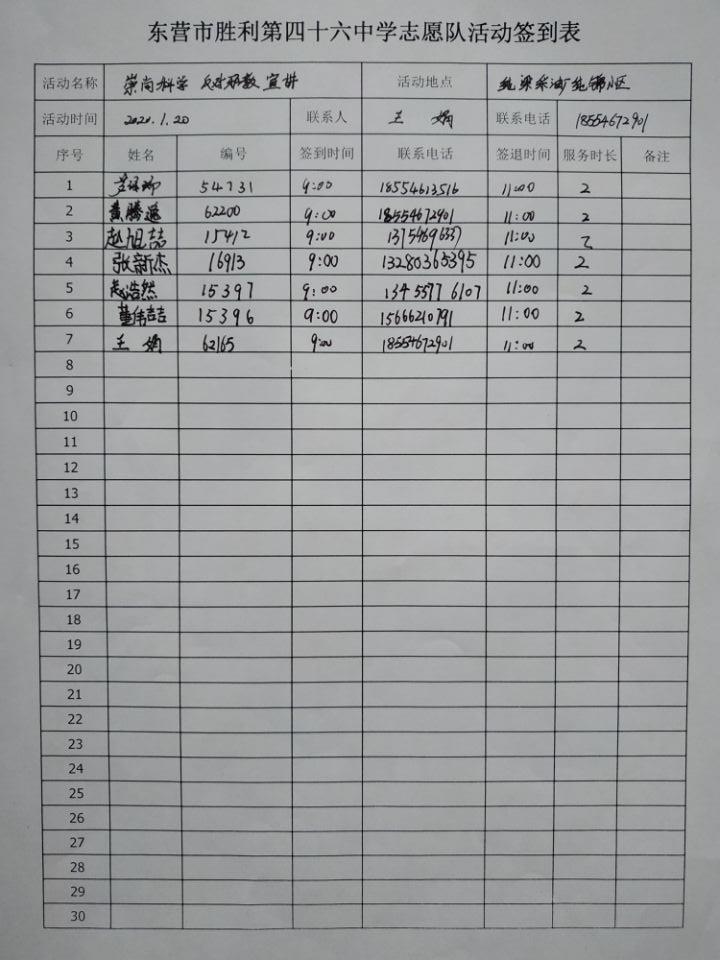 东营市胜利第四十六中学志愿队活动签到表
活动名称 崇尚科学 反对邪教 宣讲 活动地点 纯梁采油厂纯锦小区
活动时间 2020.1.20 联系人 王娟 联系电话 18554672901
序号 姓名 编号 签到时间 联系电话 签退时间 服务时长 备注
1 54731 9:00 18554613516 11:00 2
2 黄腾遥 62200 9:00 18554672901 11:00 2
3 赵旭喆 15412 9:00 13754696337 11:00 2
4 张新杰 16913 9:00 13280365395 11:00 2
5 浩然 15397 9:00 13455776107 11:00 2
6 董伟喆 15396 9:00 15666210791 11:00 2
7 王娟 62165 9:00 18554672901 11:00 2
8
9
10
11
12
13
14
15
16
17
18
19
20
21
22
23
24
25
26
27
28
29
30